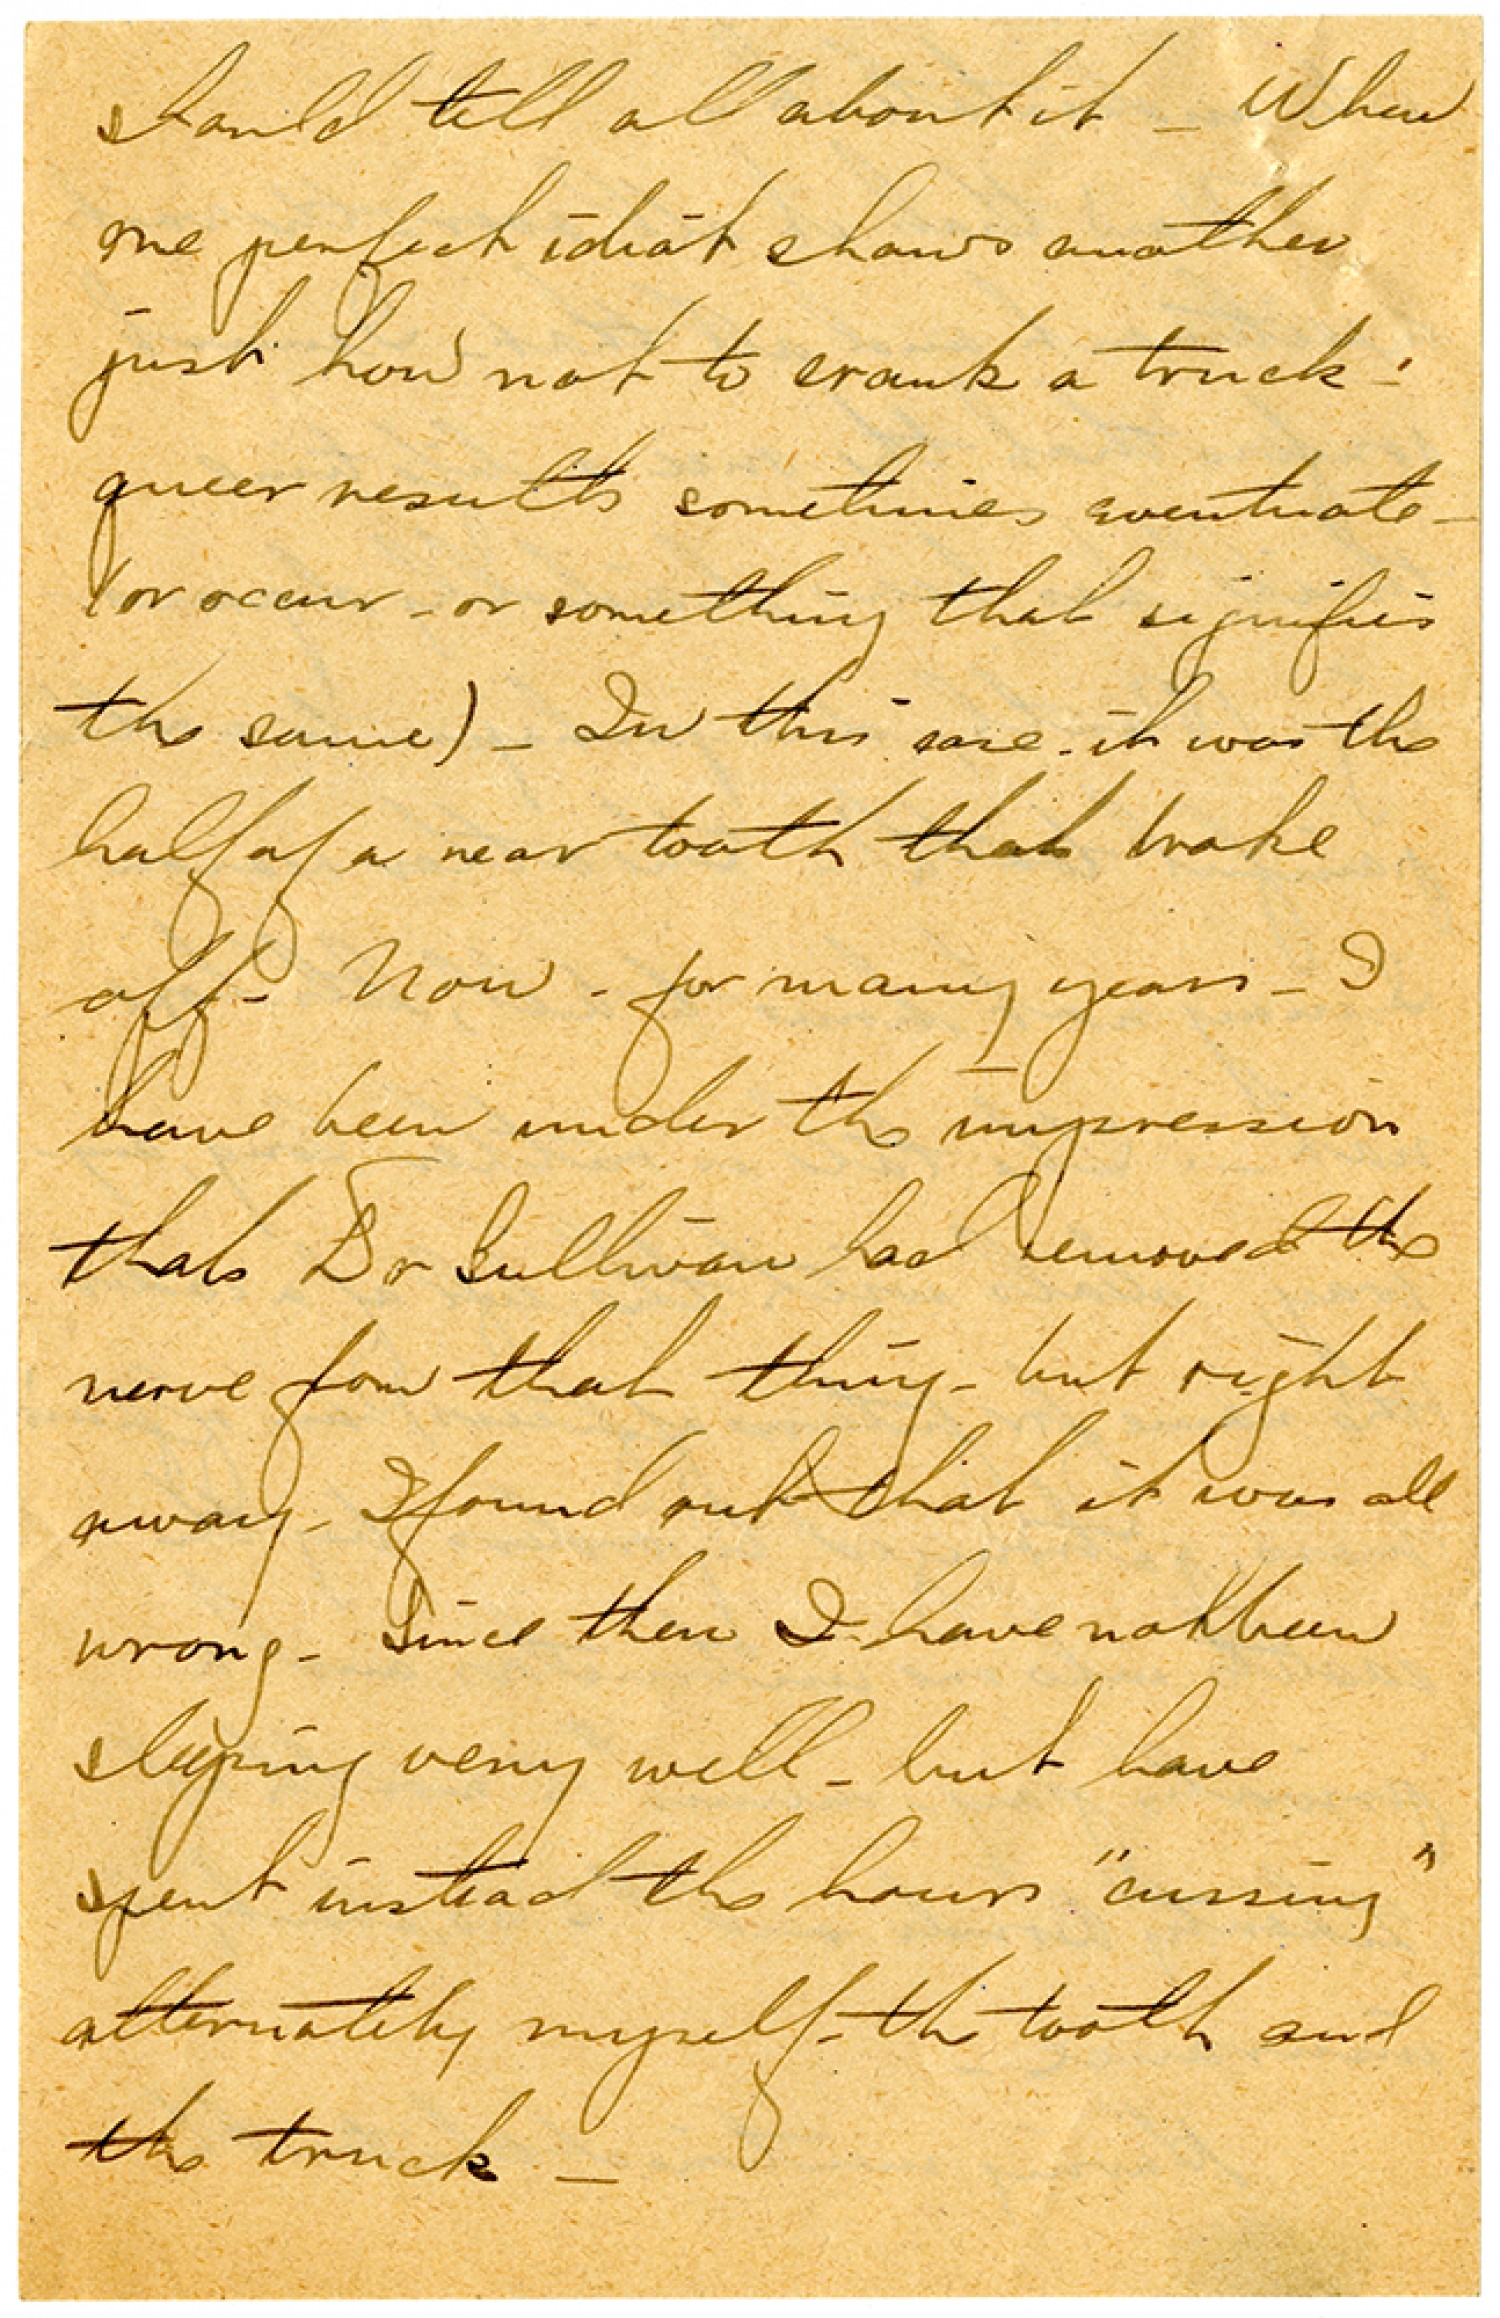 should tell all about it - When
one perfect idiot shows another
just how not to crank a truck -
queer results sometimes eventuate -
(or occur - or something that signifies
the same) - In this case - it was the
half of a rear tooth that broke
off - Now - for many years - I
have been under the impression
that Dr Sullivan had removed the
nerve from that thing - but right
away - I found out that it was all
wrong - Since then I have not been
sleeping very well - but have
spent instead the hours "cussing"
alternately myself - the tooth and
the truck -